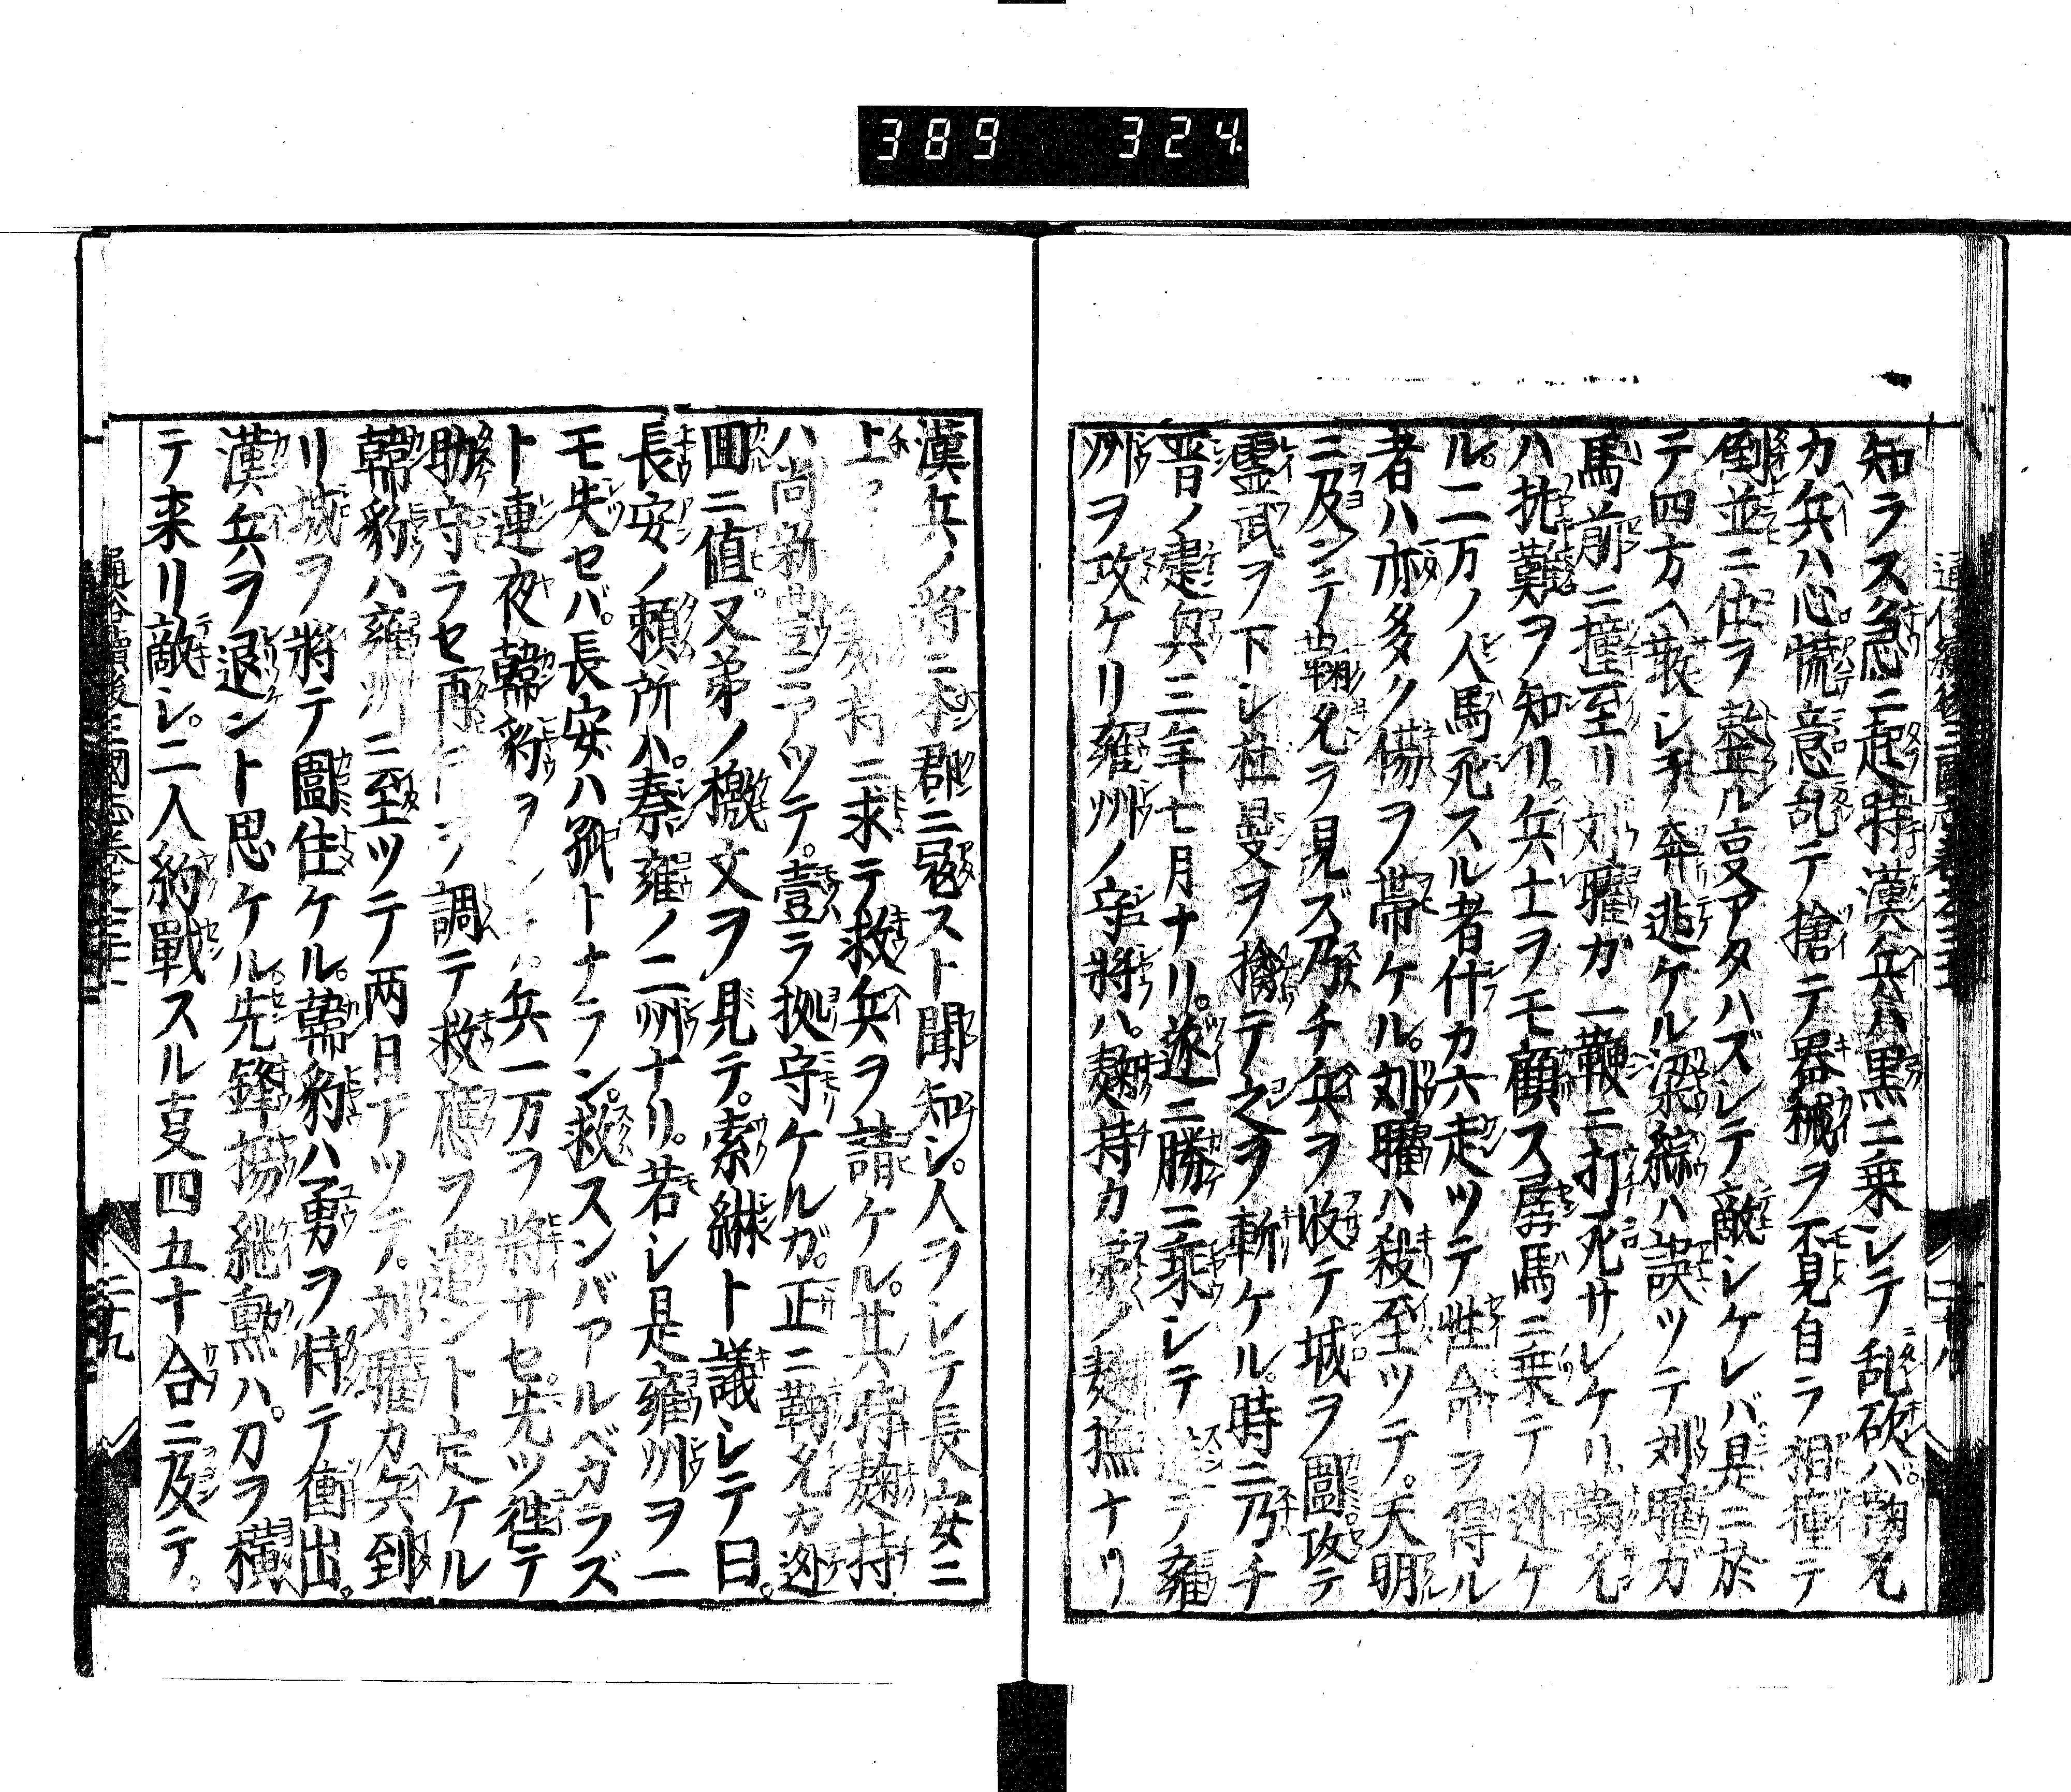 389 324
知ラス急ニ起ル時漢兵ハ黒ニ乗シテ乱砍ハ鞠允
カ兵ハ心慌意乱テ搶テ器械ヲ不見自ラ相撞テ
倒並ニ伍ヲ整ル叓アタハズシテ敵シケレバ是ニ於
テ四方ヘ散シテ奔逃ケル梁綜ハ誤ツテ刘曜ガ
馬前ニ撞至リ刘曜ガ一鞭ニ打死サレケリ鞠允
ハ抵難ヲ知リ兵士ヲモ顧ス馬ニ乗テ逃ケ
ル。二万ノ人馬死スル者什カ六走ツテ性命ヲ得ル
者ハ亦多ク傷ヲ帯ケル。刘曜ハ殺至ツテ。天明
ニ及ンテ鞠允ヲ見ズ乃チ兵ヲ收テ城ヲ圍攻テ
霊武ヲ下シ杜曼ヲ擒テ之ヲ斬ケル。時ニ乃チ
晋ノ建兵三年七月ナリ。遂ニ勝ニ乗シテ テ雍
州ヲ攻ケリ雍州ノ守將ハ。麹持カ ノ麹撫ナリ
漢兵ノ將ニ本郡ニ冦スト聞知シ。人ヲシテ長安ニ
上 ニ求テ救兵ヲ請ケル。其時麹持
ハ尚新豊ニアツテ。壹ラ拠守ケルガ。正ニ鞠允カ逊
囬ニ値。又弟ノ檄文ヲ見テ。索綝ト議シテ曰。
長安ノ頼所ハ。秦雍ノ二州ナリ。若シ是雍州ヲ一
モ失セバ。長安ハ孤トナラン。救スンバアルベカラズ
ト連夜韓豹ヲ 兵一万ヲ將サセ先ツ徃テ
助守ラセ再 ヲ調テ救應ヲ遣ント定ケル
韓豹ハ雍州ニ至ツテ両日アツテ。刘曜カ兵到
リ城ヲ將テ圍住ケル。韓豹ハ勇ヲ恃テ衝出。
漢兵ヲ退ント思ケル。先鋒楊継勲ハ。刀ヲ横
テ来リ敵シ。二人約戰スル叓四五十合ニ及テ。
二十九